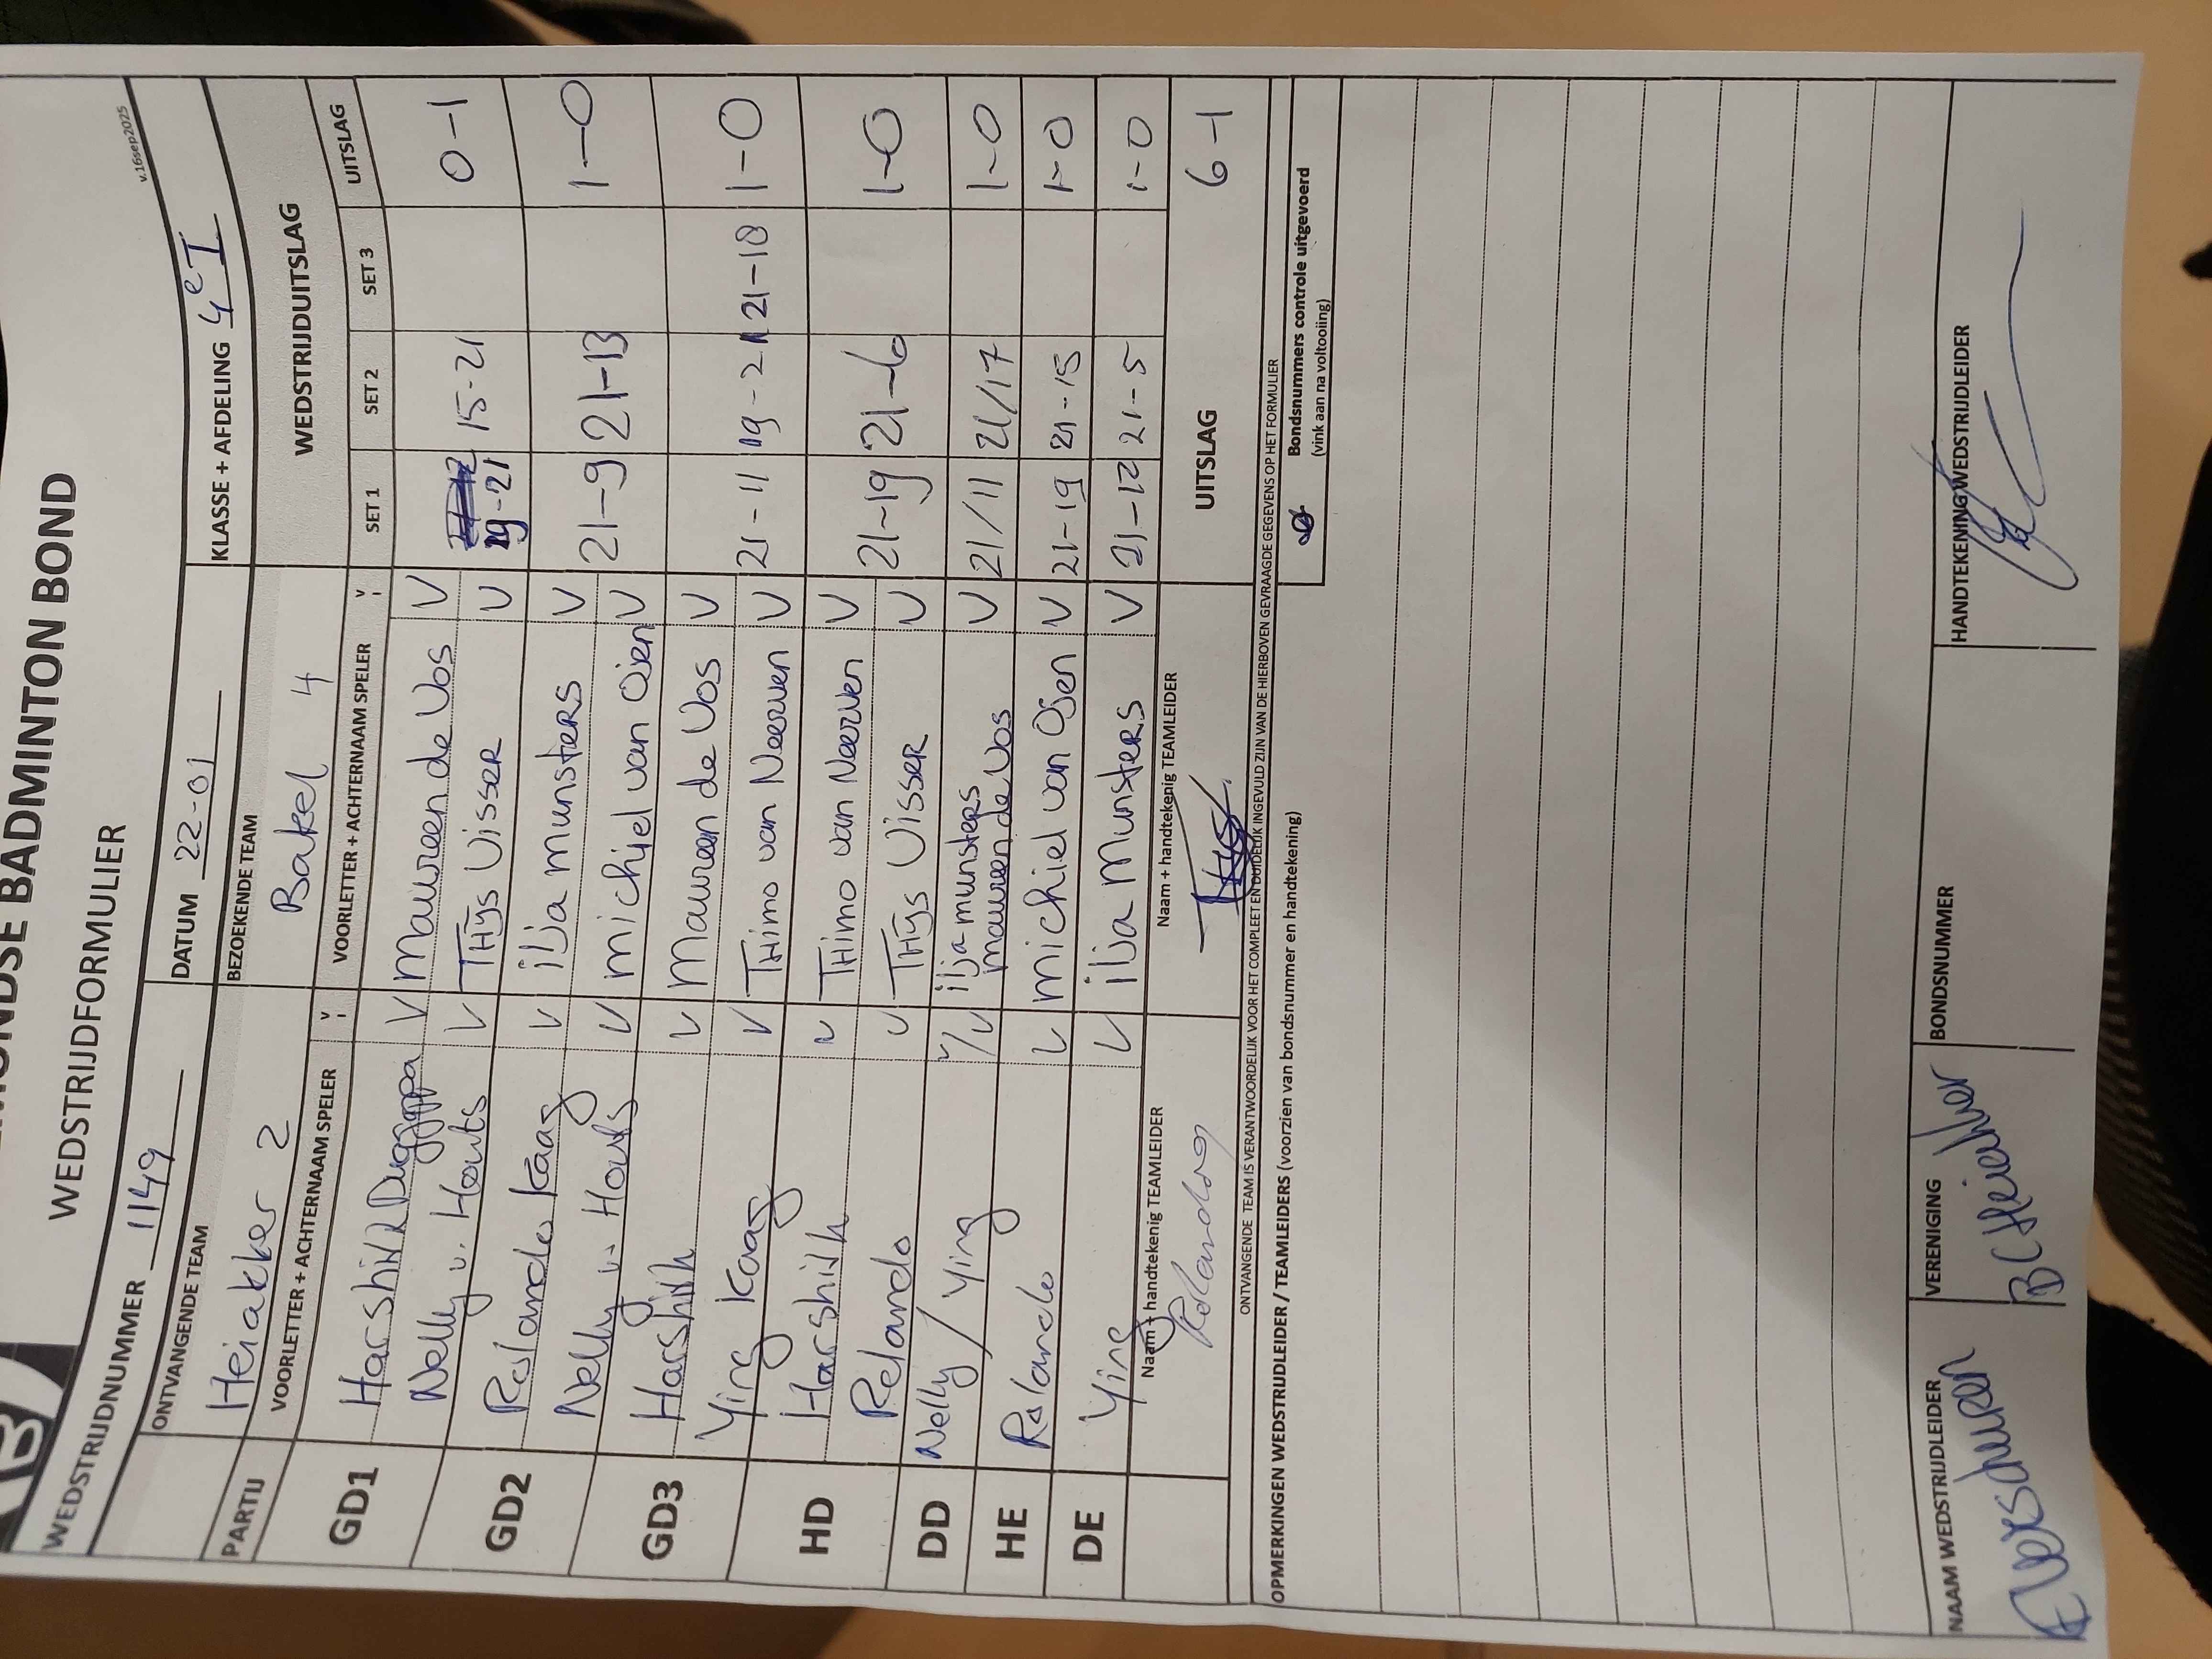 BADMINTON BOND
WEDSTRIJDFORMULIER
v.16sep2025
WEDSTRIJDNUMMER 1149 DATUM 22-01 KLASSE + AFDELING 4e I
ONTVANGENDE TEAM BEZOEKENDE TEAM
Heiakker 2 Bakel 4
WEDSTRIJDUITSLAG
PARTIJ VOORLETTER + ACHTERNAAM SPELER V VOORLETTER + ACHTERNAAM SPELER V SET 1 SET 2 SET 3 UITSLAG
GD1 Harshith V Maureen de Vos V
Nelly v. Houts V THijs Visser V 19-21 15-21 0-1
GD2 Rolando Kaag V ilja munsters V
Nelly v. Houts V michiel van Osen V 21-9 21-13 1-0
GD3 Harshith V Maureen de Vos V
Ying Kaag V THimo van Neerven V 21-11 19-21 21-18 1-0
HD Harshith V THimo van Neerven V
Rolando V THijs Visser V 21-19 21-6 1-0
DD Nelly / Ying V/V ilja munsters
maureen de Vos V 21/11 21/17 1-0
HE Rolando V michiel van Osen V 21-19 21-15 1-0
DE Ying V ilja Munsters V 21-12 21-5 1-0
Naam + handtekenig TEAMLEIDER Naam + handtekenig TEAMLEIDER UITSLAG 6-1
Rolando
ONTVANGENDE TEAM IS VERANTWOORDELIJK VOOR HET COMPLEET EN DUIDELIJK INGEVULD ZIJN VAN DE HIERBOVEN GEVRAAGDE GEGEVENS OP HET FORMULIER
OPMERKINGEN WEDSTRIJDLEIDER / TEAMLEIDERS (voorzien van bondsnummer en handtekening)
Bondsnummers controle uitgevoerd
(vink aan na voltooiing)
NAAM WEDSTRIJDLEIDER VERENIGING BONDSNUMMER HANDTEKENING WEDSTRIJDLEIDER
Verschuren BC Heiakker